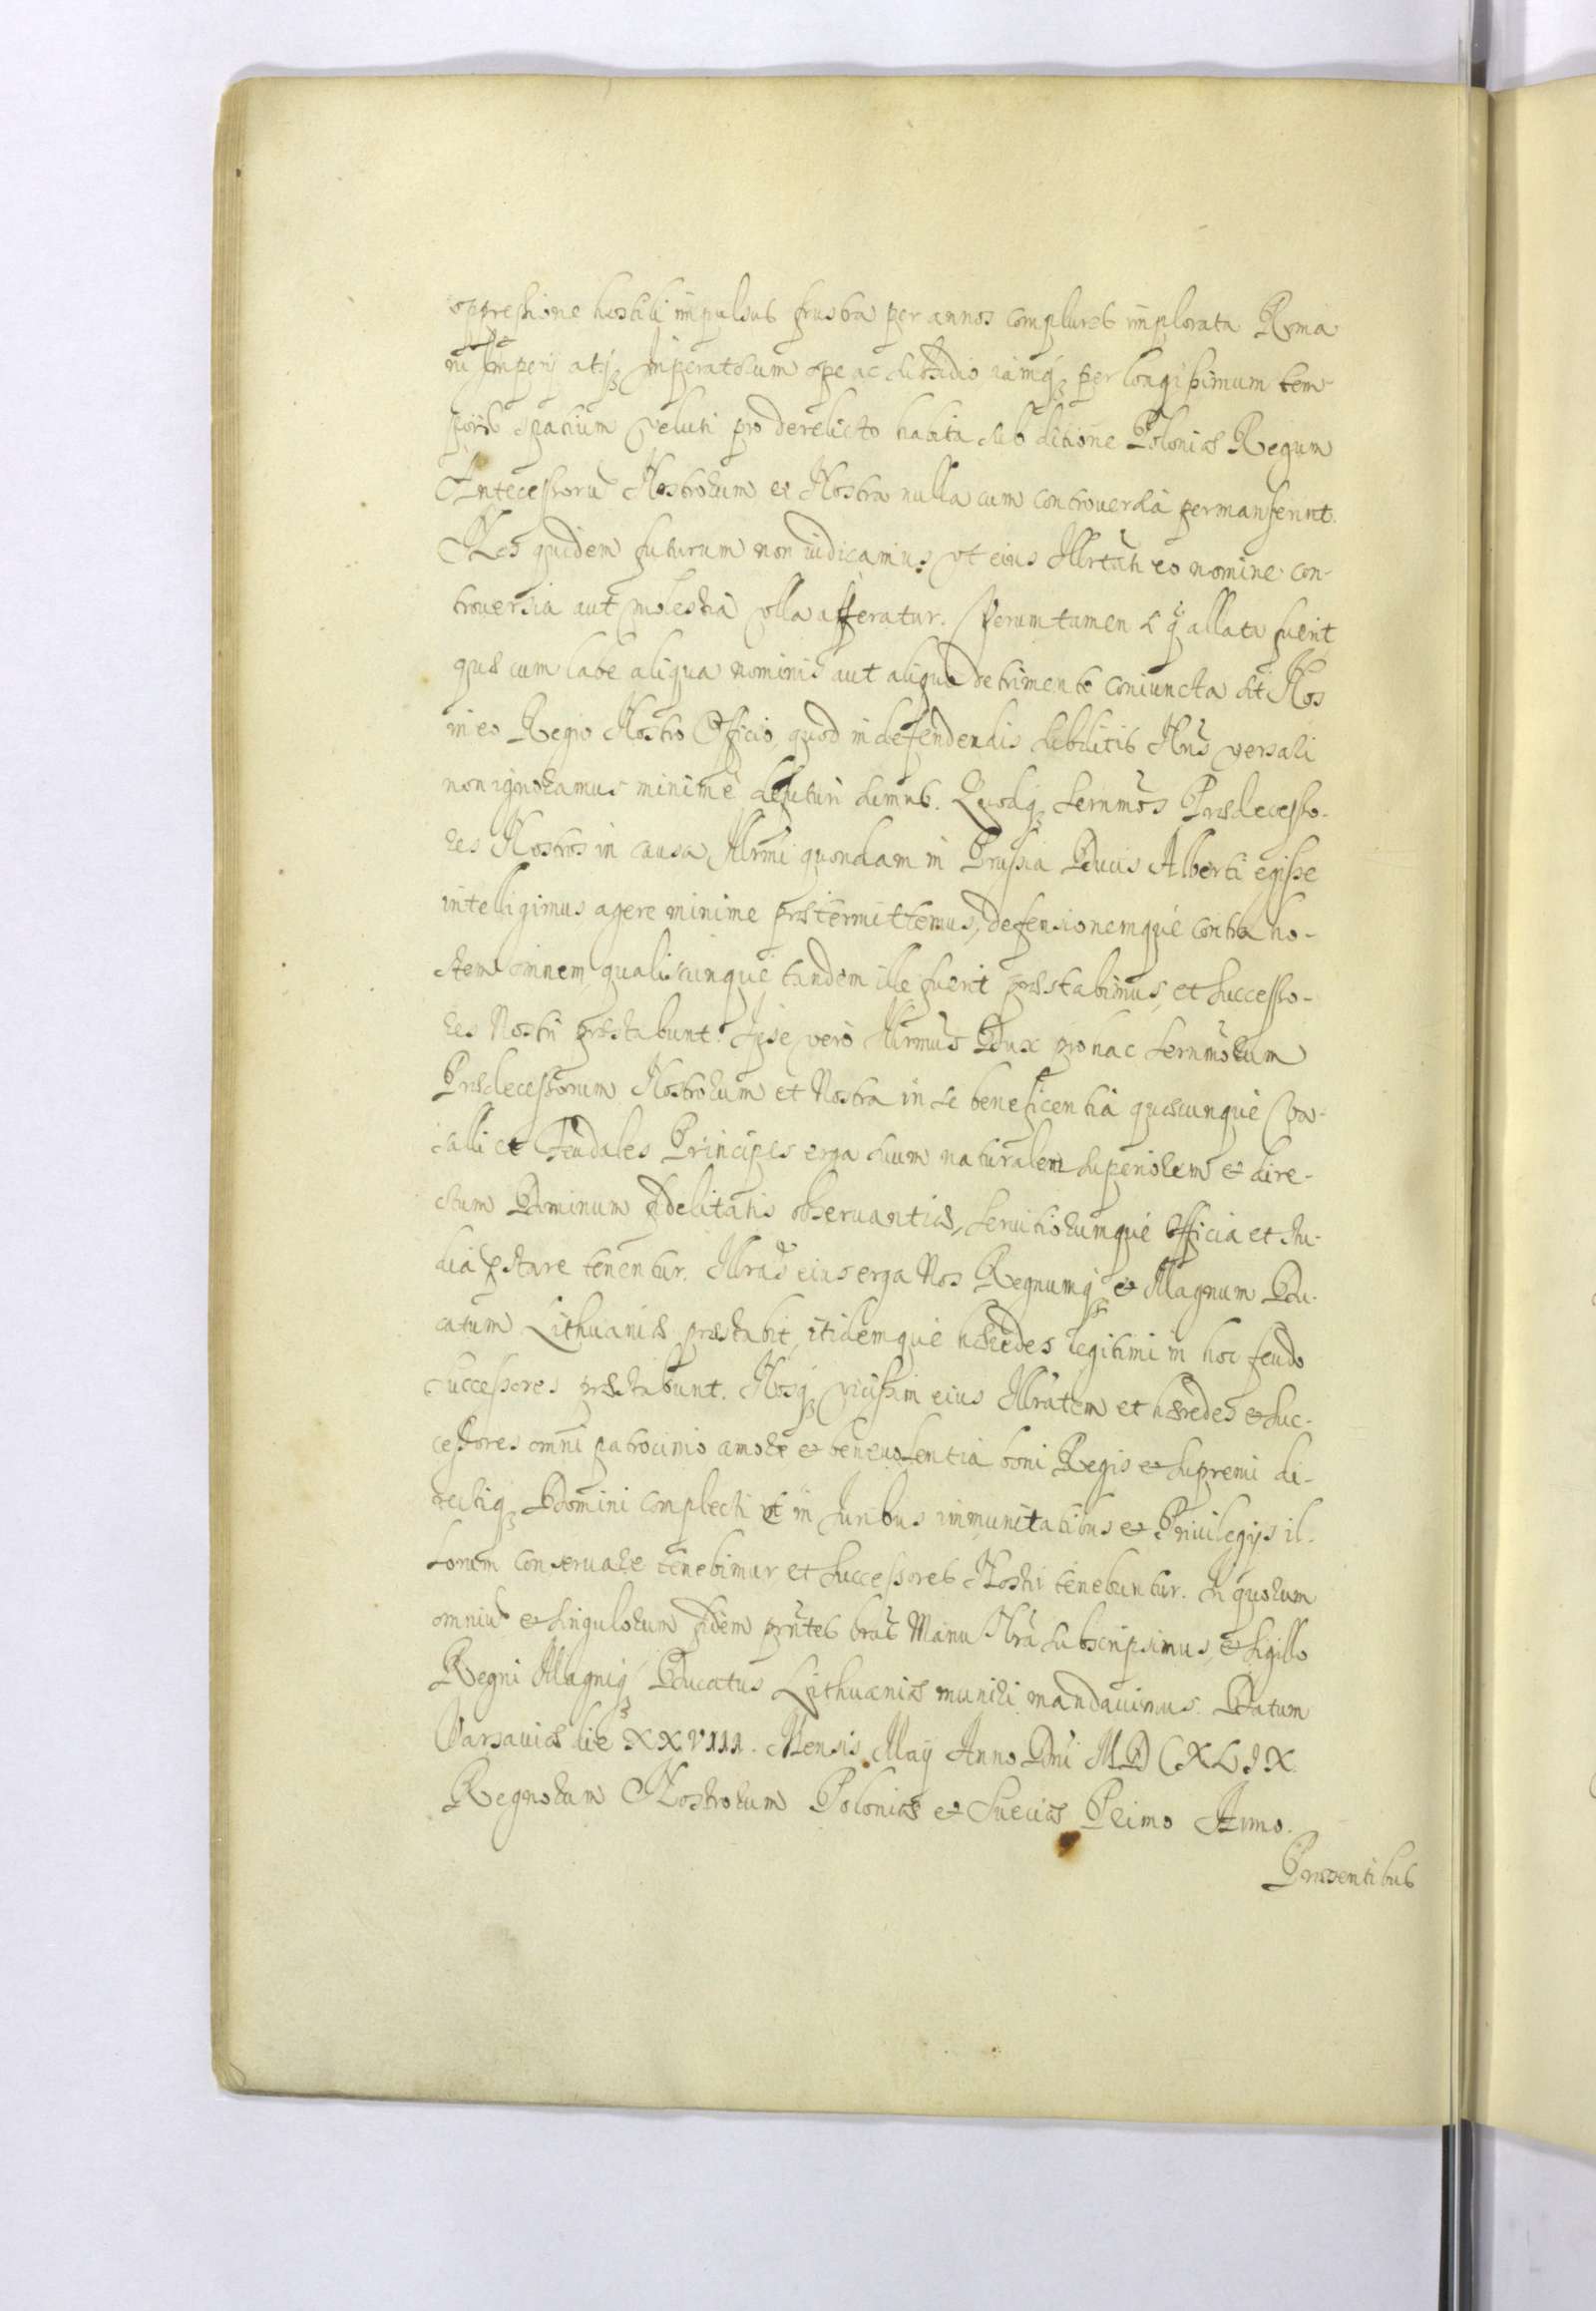 oppressione hostili impulsus frustra per annos complures implorata Roma
ni Imperij atq; Imperatorum ope ac subsidio iamq; per longissimum tem-
poris spatium veluti pro derelicto habita sub ditione Poloniæ Regum
Antecessorũ Nostrorum et Nostra nulla cum controuersia permanserint.
Nos quidem futurum non iudicamus vt eius Illrtati eo nomine con-
trouersia aut molestia vlla afferatur. Verumtamen si q̃ allata fuerit
quæ cum labe aliqua nominis aut aliquo detrimento coniuncta sit Nos
in eo Regio Nostro Officio, quod in defendendis subditis Nris versari
non ignoramus minimè defuturi sumus. Quodq; Sernmõs Prædecesso-
res Nostros in causa Illrmi quondam in Prussia Ducis Alberti egisse
intelligimus agere minime prætermittemus, defensionemque contra ho-
stem omnem qualiscunque tandem ille fuerit præstabimus, et Successo-
res Nostri præstabunt. Ipse verò Illrmus Dux pro hac Sernmõrum
Prædecessorum Nostrorum et Nostra in se beneficentia quæcunque Va-
salli et Feudales Principes erga suum naturalem superiorem et dire-
ctum Dominum fidelitatis obseruantiæ, seruitiorumque officia et stu-
dia p̃stare tenentur. Illrtas eius erga Nos Regnumq; et Magnum Du-
catum Lithuaniæ præstabit, itidemque hæredes legitimi in hoc feudo
Successores præstabunt. Nosq; vicissim eius Illrtatem et hæredes et Suc-
cessores omni patrocinio amore et beneuolentia boni Regis et Supremi di-
rectiq; Domini complecti et in Iuribus immunitatibus et Priuilegijs il-
lorum conseruare tenebimur et Successores Nostri tenebuntur. In quorum
omniũ et singulorum fidem pñtes lrãs Manu Nrã subscripsimus, et Sigillo
Regni Magniq; Ducatus Lithuaniæ muniri mandauimus. Datum
Varsauiæ die XXVIII. Mensis Maij Anno Dni MDCXLIX
Regnorum Nostrorum Poloniæ et Sueciæ Primo Anno.
Præsentibus